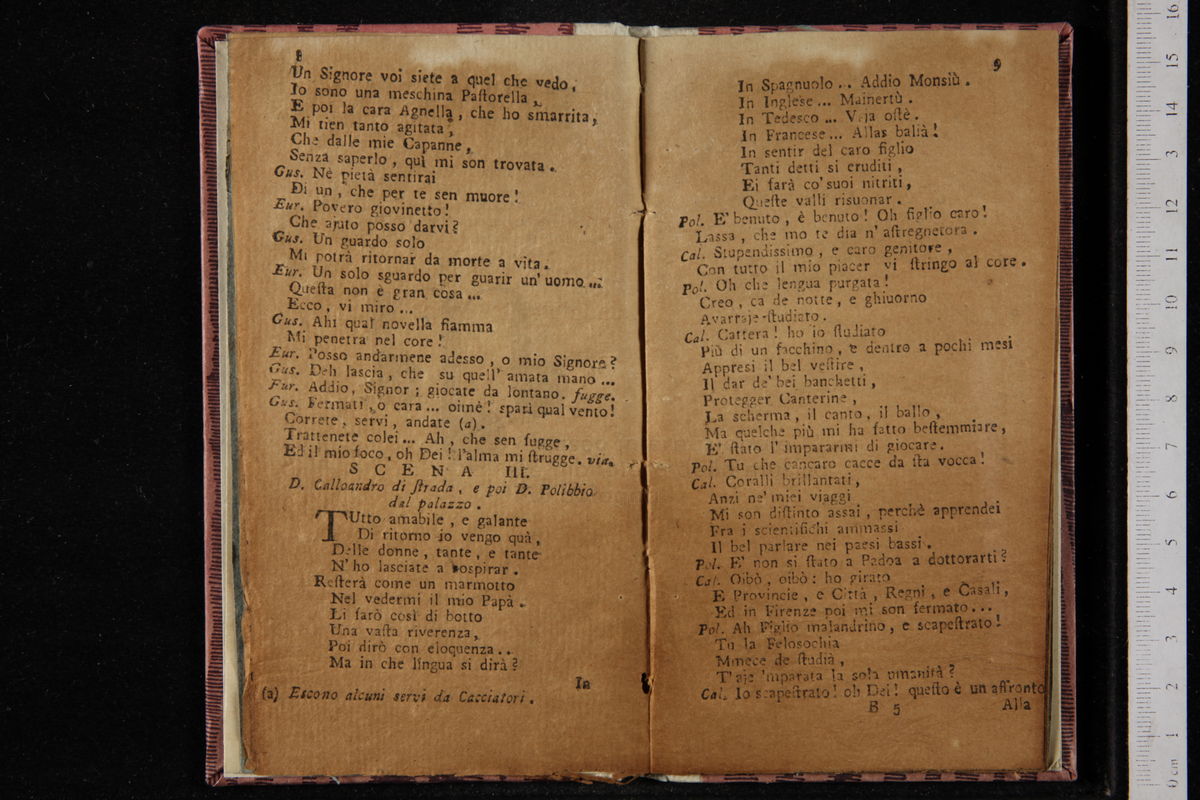 8
Un Signore voi siete a quel che vedo,
Io sono una meschina Paſtorella,
E poi la cara Agnella, che ho smarrita,
Mi tien tanto agitata,
Che dalle mie Capanne,
Senza saperlo, quì mi son trovata.
Gus. Nè pietà sentirai
Di un, che per te sen muore!
Eur. Povero giovinetto!
Che ajuto posso darvi?
Gus. Un guardo solo
Mi potrà ritornar da morte a vita.
Eur. Un solo sguardo per guarir un' uomo...
Queſta non è gran cosa...
Ecco, vi miro...
Gus. Ahi qual novella fiamma
Mi penetra nel core!
Eur. Posso andarmene adesso, o mio Signore?
Gus. Deh lascia, che su quell' amata mano...
Eur. Addio, Signor; giocate da lontano. fugge.
Gus. Fermati, o cara... oimè! sparì qual vento!
Correte, servi, andate (a).
Trattenete colei... Ah, che sen fugge,
Ed il mio foco, oh Dei! l'alma mi ſtrugge. via.
SCENA III.
D. Calloandro di ſtrada, e poi D. Polibbio
dal palazzo.
TUtto amabile, e galante
Di ritorno io vengo quà,
Delle donne, tante, e tante
N' ho lasciate a sospirar.
Reſterà come un marmotto
Nel vedermi il mio Papà.
Li farò così di botto
Una vaſta riverenza,
Poi dirò con eloquenza..
Ma in che lingua si dirà?
In
(a) Escono alcuni servi da Cacciatori.
9
In Spagnuolo... Addio Monsiù.
In Inglese... Mainertù.
In Tedesco... Vaja oſtè.
In Francese... Allas balià!
In sentir del caro figlio
Tanti detti sì eruditi,
Ei farà co' suoi nitriti,
Queſte valli risuonar.
Pol. E' benuto, è benuto! Oh figlio caro!
Lassa, che mo te dia n' aſtregnetora.
Cal. Stupendissimo, e caro genitore,
Con tutto il mio piacer vi ſtringo al core.
Pol. Oh che lengua purgata!
Creo, ca de notte, e ghiuorno
Avarraje ſtudiato.
Cal. Cattera! ho io ſtudiato
Più di un facchino, e dentro a pochi mesi
Appresi il bel veſtire,
Il dar de' bei banchetti,
Protegger Canterine,
La scherma, il canto, il ballo,
Ma quelche più mi ha fatto beſtemmiare,
E' ſtato l' impararmi di giocare.
Pol. Tu che cancaro cacce da ſta vocca!
Cal. Coralli brillantati,
Anzi ne' miei viaggi
Mi son diſtinto assai, perchè apprendei
Fra i scientifichi ammassi
Il bel parlare nei paesi bassi.
Pol. E' non si ſtato a Padoa a dottorarti?
Cal. Oibò, oibò: ho girato
E Provincie, e Città, Regni, e Casali,
Ed in Firenze poi mi son fermato...
Pol. Ah Figlio malandrino, e scapeſtrato!
Tu la Felosochia
Mmece de ſtudià,
T' aje 'mparata la sola umanità?
Cal. Io scapeſtrato! oh Dei! queſto è un affronto
B 5
Alla